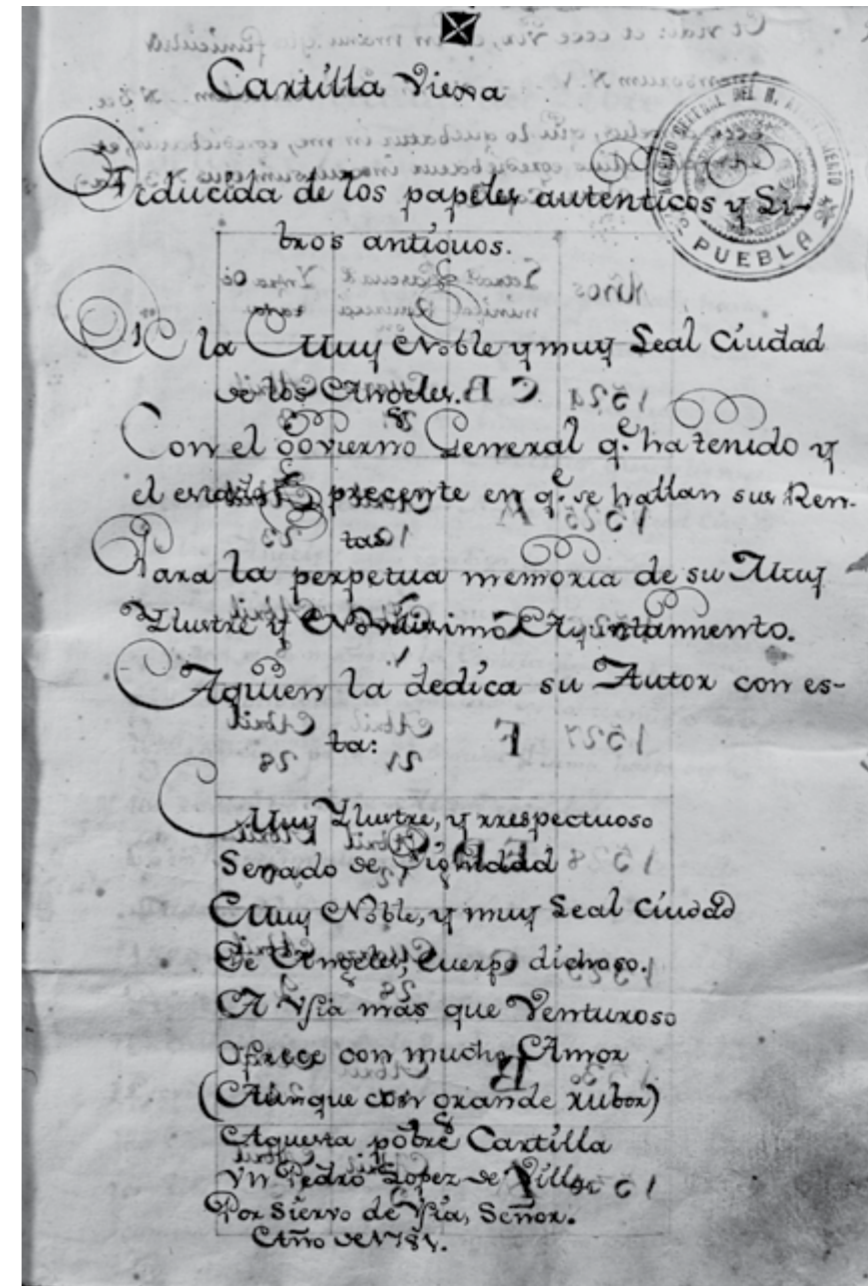 Cartilla Viexa
Reducida de los papeles autenticos y Li-
bros antiguos.
De la Muy Noble y muy Leal Ciudad
de los Angeles.
Con el govierno General q.e ha tenido y
el estado precente en q.e se hallan sus Ren-
tas.
Para la perpetua memoria de su Muy
Ylustre y Novilissimo Ayuntamiento.
Aquien la dedica su Autor con es-
ta:
Muy Ylustre, y rrespectuoso
Senado de Dignidad
Muy Noble, y muy Leal Ciudad
De Angeles, Cuerpo dichoso.
A Vsia más que Venturoso
Ofrece con mucho Amor
(Aunque con grande rubor)
Aquesta pobre Cartilla
Vn Pedro Lopez de Villa
Por Siervo de Vsia, Señor.
Año de 1781.
ARCHIVO GENERAL DEL H. AYUNTAMIENTO
PUEBLA